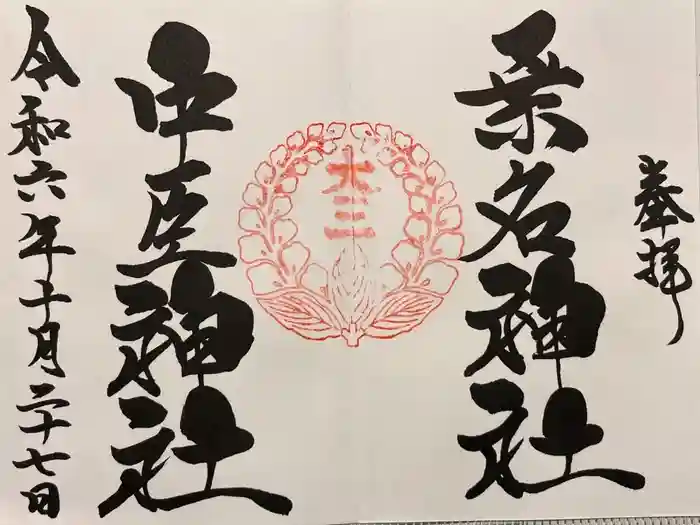 奉拝
桑名神社
本三
中臣神社
令和六年十月二十七日